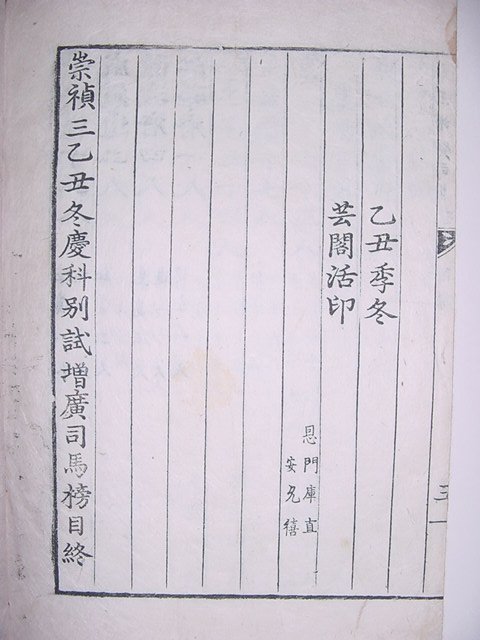 乙丑季冬
芸閣活印
恩門庫直
安允禧
崇禎三乙丑冬慶科別試增廣司馬榜目終